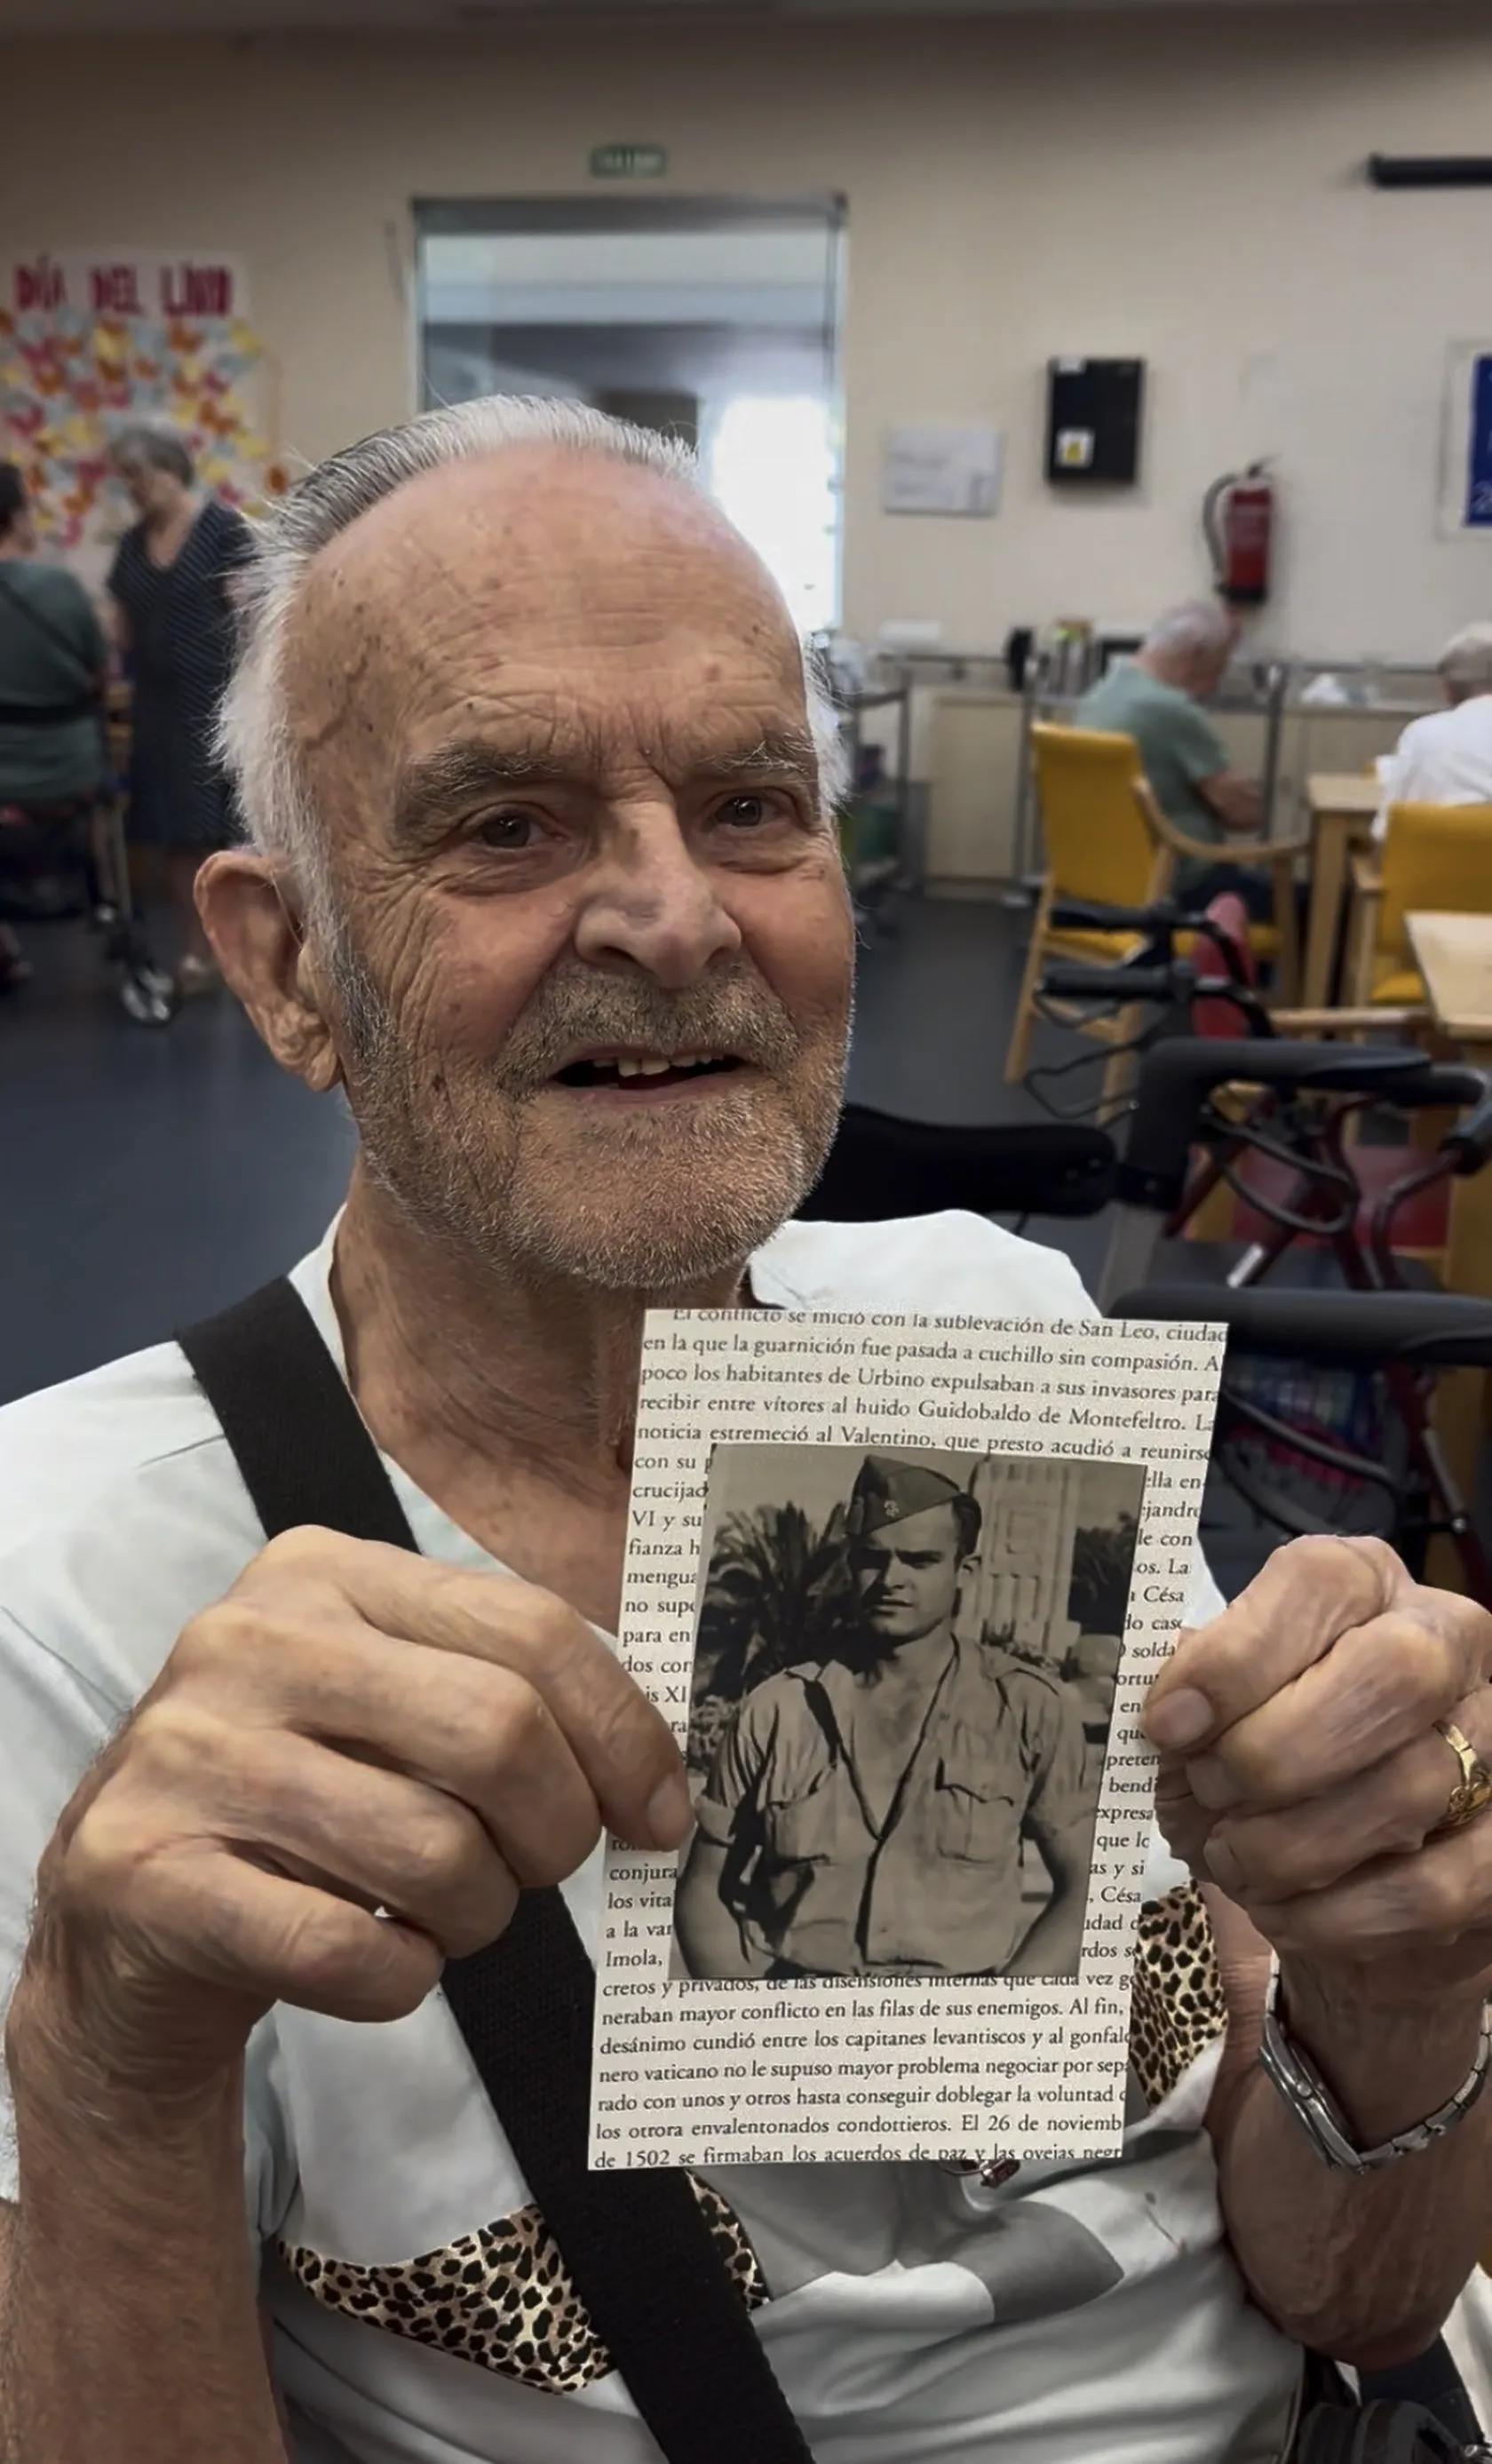 DÍA DEL LIBRO
El conflicto se inició con la sublevación de San Leo, ciudad
en la que la guarnición fue pasada a cuchillo sin compasión. A
poco los habitantes de Urbino expulsaban a sus invasores para
recibir entre vítores al huido Guidobaldo de Montefeltro. La
noticia estremeció al Valentino, que presto acudió a reunirse
con su
crucijad ella en
VI y su ejandro
fianza h le con
mengua os. La
no supo César
para en do caso
dos con solda
is XI ortu
ra en
que
preten
bendi
expresa
que lo
conjura as y si
los vita , César
a la van udad d
Imola, rdos se
cretos y privados, de las disensiones internas que cada vez ge
neraban mayor conflicto en las filas de sus enemigos. Al fin,
desánimo cundió entre los capitanes levantiscos y al gonfalo
nero vaticano no le supuso mayor problema negociar por sepa
rado con unos y otros hasta conseguir doblegar la voluntad d
los otrora envalentonados condottieros. El 26 de noviemb
de 1502 se firmaban los acuerdos de paz y las ovejas negr